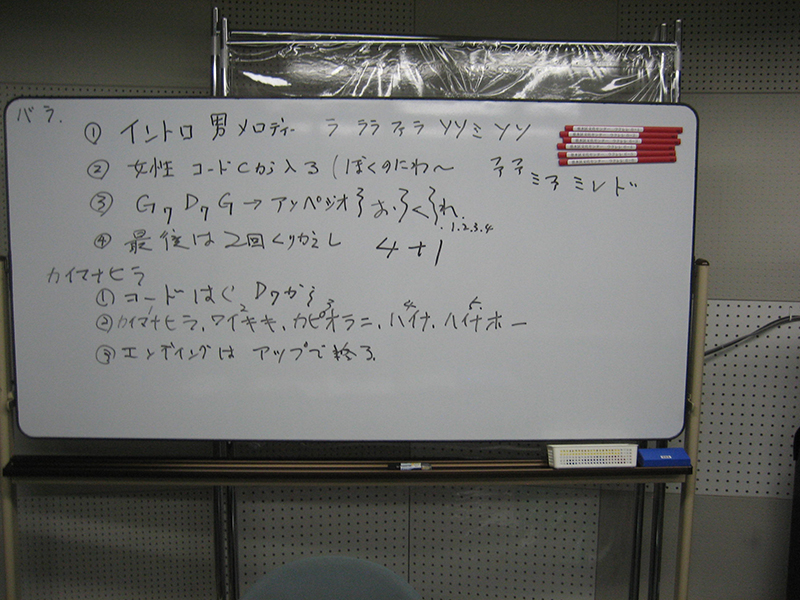 バラ.
① イントロ 男 メロディー ラ ララ ファラ ソソミ ソソ
ファファ
ミファ ミレド
② 女性 コードCから入る (ぼくのにわ〜
③ G7 D7 G → アルペジオ
.1.2.3.4
④ 最後は 2回くりかえし 4+1
カイマナヒラ
① コードは G D7から
② カイマナヒラ、ワイキキ、カピオラニ、ハイナ、ハイナホー
1 2 3 4 5.
③ エンディングは アップで終る.